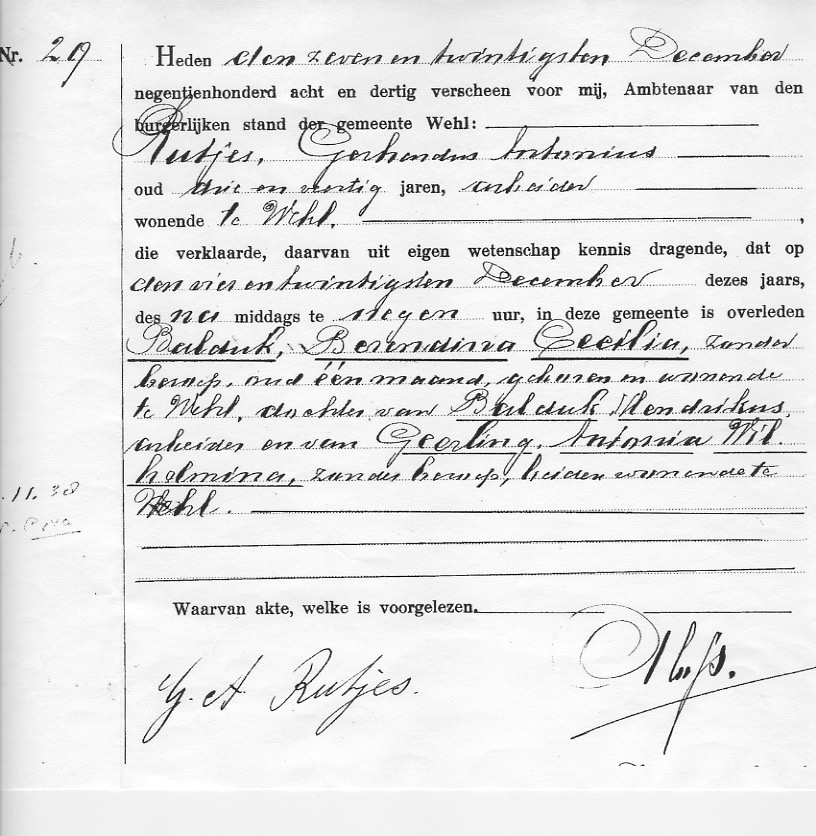 Nr. 29
Heden den zeven en twintigsten December
negentienhonderd acht en dertig verscheen voor mij, Ambtenaar van den
burgerlijken stand der gemeente Wehl:
Rutjes, Gerhardus Antonius
oud drie en veertig jaren, arbeider
wonende te Wehl,
die verklaarde, daarvan uit eigen wetenschap kennis dragende, dat op
den vier en twintigsten December dezes jaars,
des na middags te negen uur, in deze gemeente is overleden
Balduk, Berendina Cecilia, zonder
beroep, oud één maand, geboren en wonende
te Wehl, dochter van Balduk Hendrikus,
arbeider en van Geerling, Antonia Wil-
helmina, zonder beroep, beiden wonende te
Wehl.
11.38
Waarvan akte, welke is voorgelezen.
G. A. Rutjes.